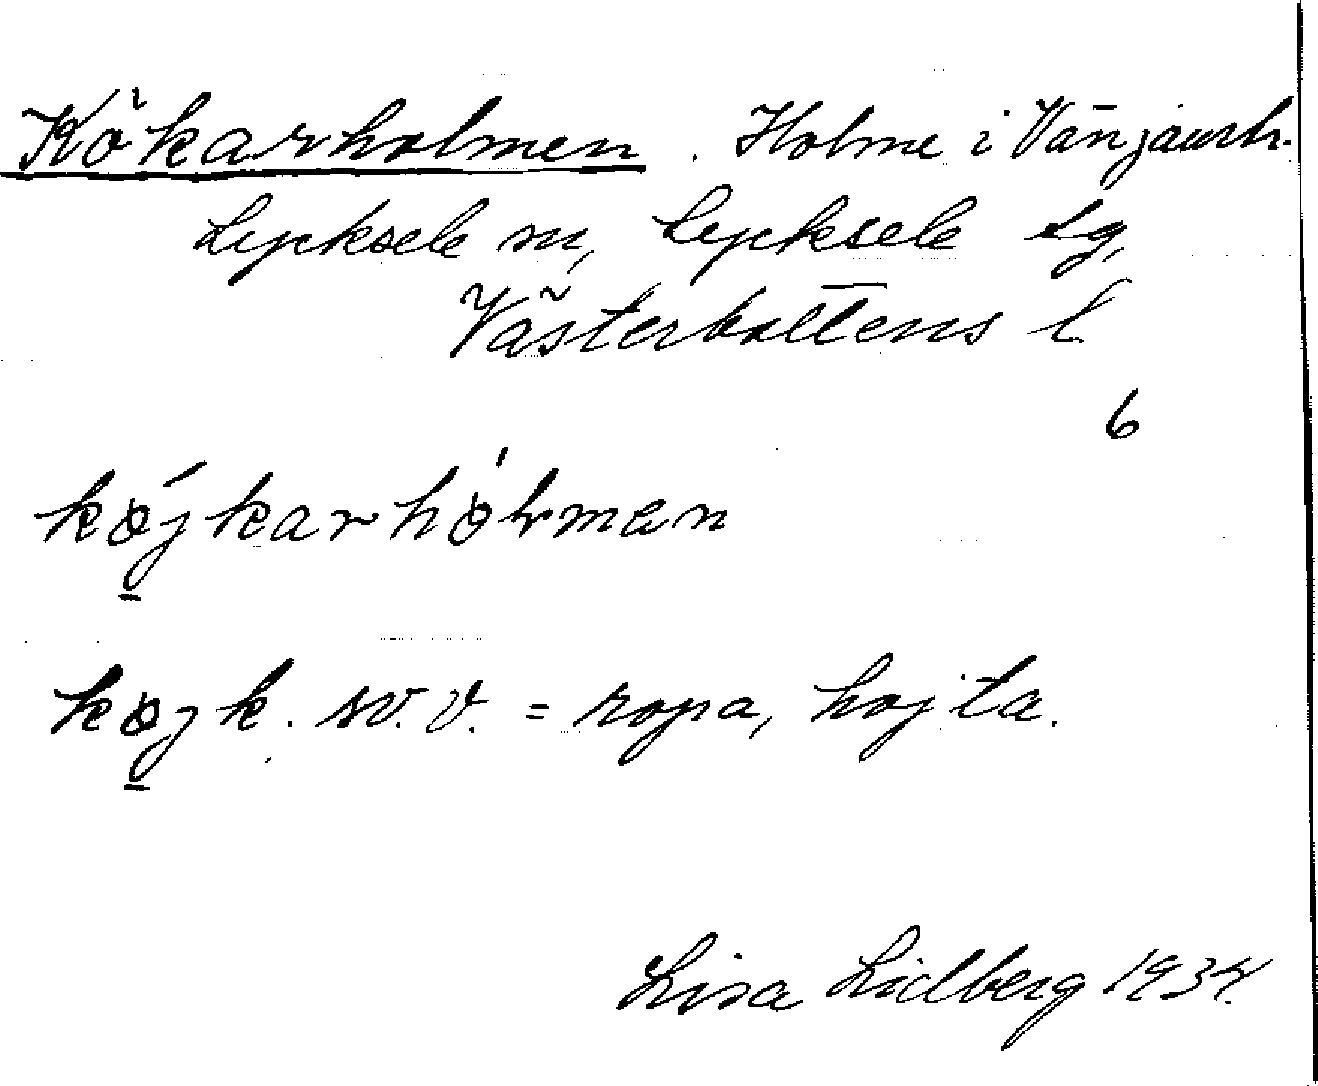 Kökarholmen. Holme i Vänjaurtr.
Lycksele sn, Lycksele lg,
Västerbottens l.
6
køjkarhólmen
køjk. sv. v. = ropa, hojta.
Lisa Lidberg 1934.